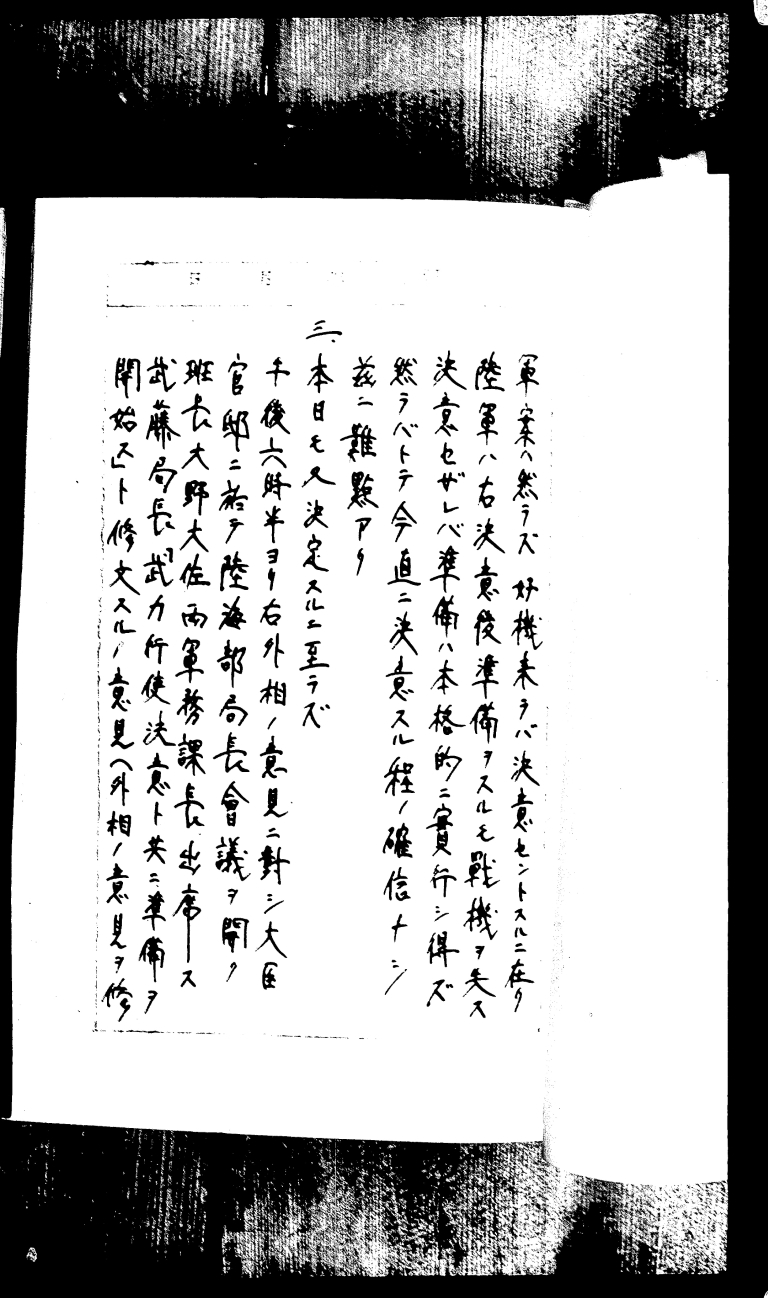 軍案ハ然ラズ 好機来ラバ決意セントスルニ在リ
陸軍ハ右決意後準備ヲスルモ戦機ヲ失ス
決意セザレバ準備ハ本格的ニ實行シ得ズ
然ラバトテ今直ニ決意スル程ノ確信ナシ
茲ニ難點アリ
三、本日モ又決定スルニ至ラズ
午後六時半ヨリ右外相ノ意見ニ對シ大臣
官邸ニ於テ陸海部局長會議ヲ開ク
班長大野大佐両軍務課長出席ス
武藤局長「武力行使決意ト共ニ準備ヲ
開始ス」ト修文スルノ意見(外相ノ意見ヲ修